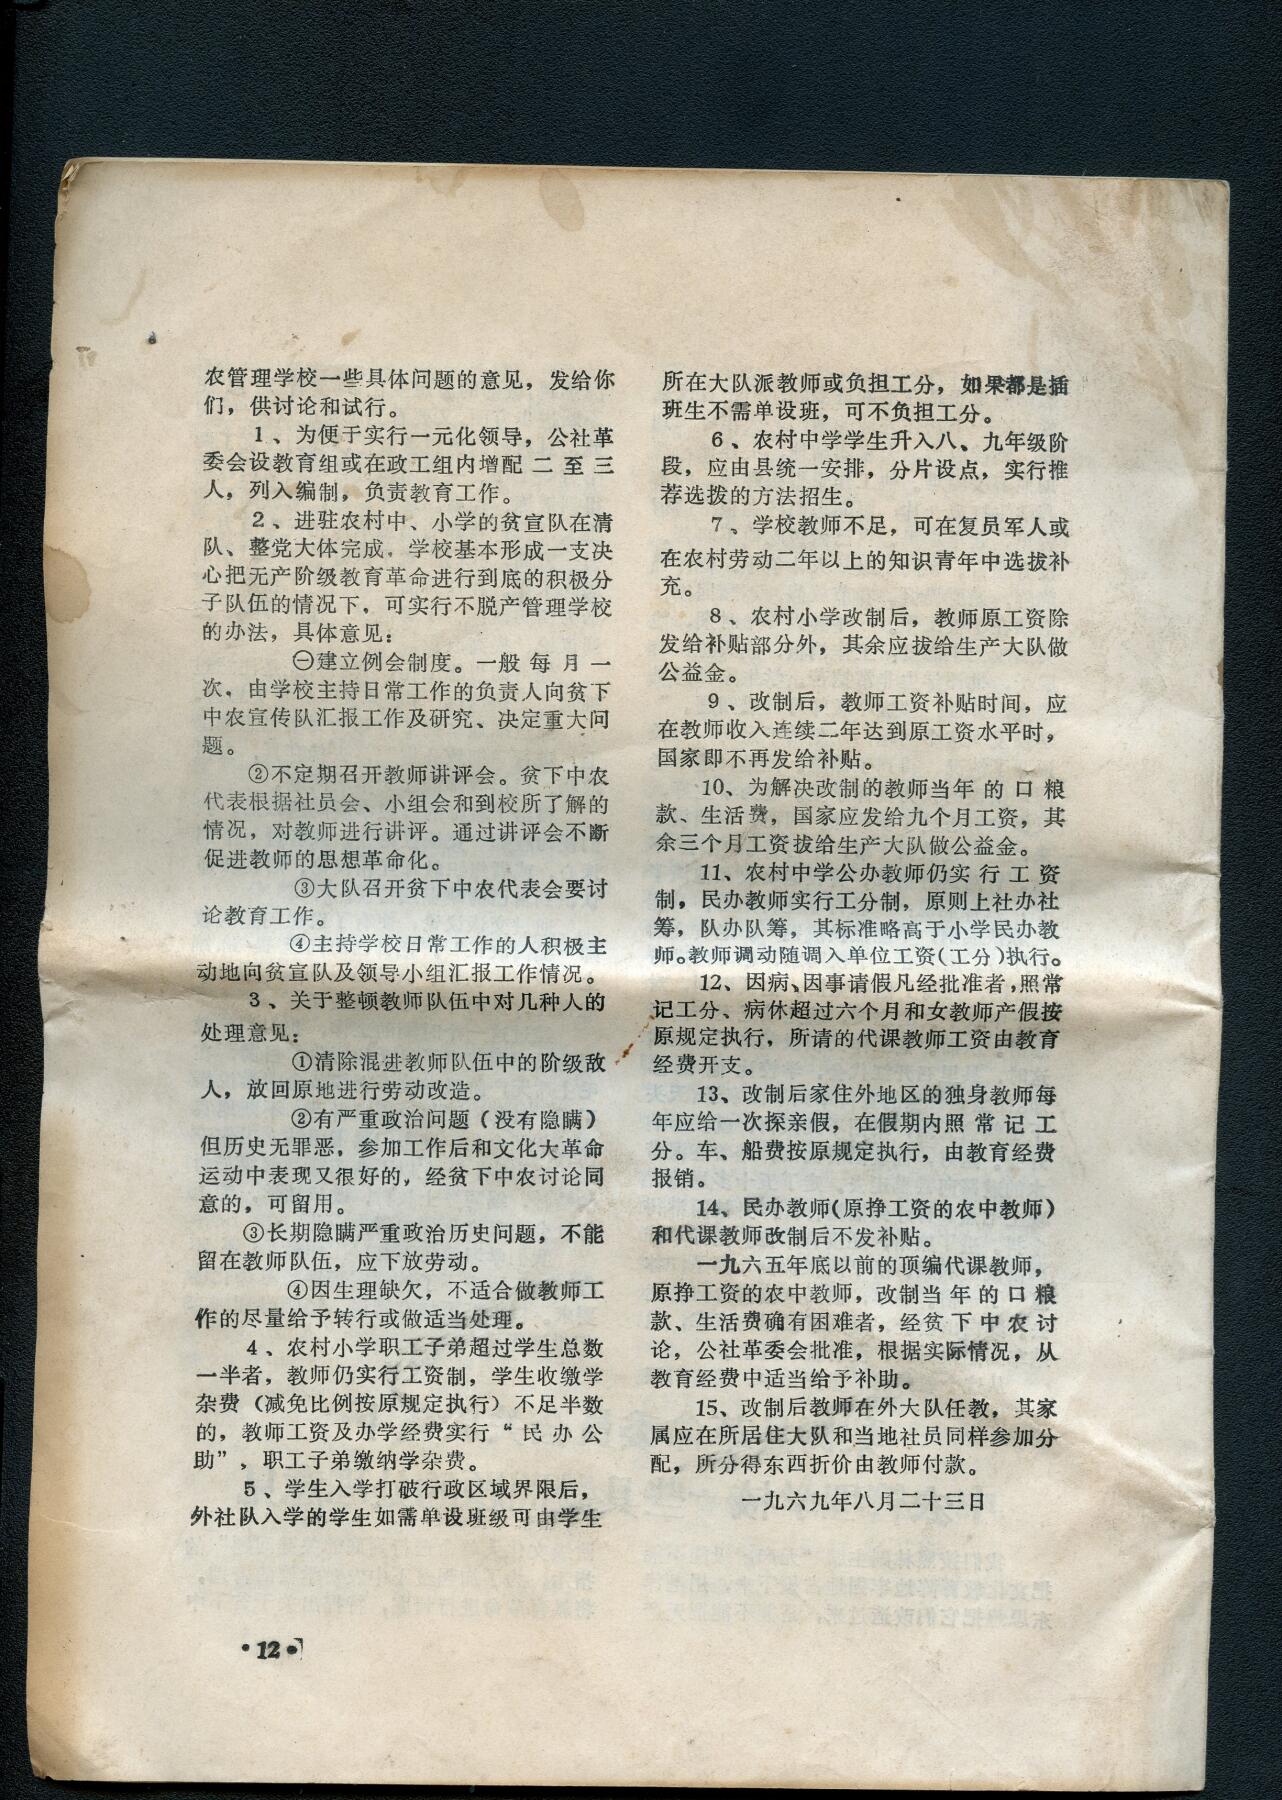 农管理学校一些具体问题的意见，发给你
们，供讨论和试行。
1、为便于实行一元化领导，公社革
委会设教育组或在政工组内增配二至三
人，列入编制，负责教育工作。
2、进驻农村中、小学的贫宣队在清
队、整党大体完成，学校基本形成一支决
心把无产阶级教育革命进行到底的积极分
子队伍的情况下，可实行不脱产管理学校
的办法，具体意见：
㊀建立例会制度。一般每月一
次，由学校主持日常工作的负责人向贫下
中农宣传队汇报工作及研究、决定重大问
题。
②不定期召开教师讲评会。贫下中农
代表根据社员会、小组会和到校所了解的
情况，对教师进行讲评。通过讲评会不断
促进教师的思想革命化。
③大队召开贫下中农代表会要讨
论教育工作。
④主持学校日常工作的人积极主
动地向贫宣队及领导小组汇报工作情况。
3、关于整顿教师队伍中对几种人的
处理意见：
①清除混进教师队伍中的阶级敌
人，放回原地进行劳动改造。
②有严重政治问题（没有隐瞒）
但历史无罪恶，参加工作后和文化大革命
运动中表现又很好的，经贫下中农讨论同
意的，可留用。
③长期隐瞒严重政治历史问题，不能
留在教师队伍，应下放劳动。
④因生理缺欠，不适合做教师工
作的尽量给予转行或做适当处理。
4、农村小学职工子弟超过学生总数
一半者，教师仍实行工资制，学生收缴学
杂费（减免比例按原规定执行）不足半数
的，教师工资及办学经费实行“民办公
助”，职工子弟缴纳学杂费。
5、学生入学打破行政区域界限后，
外社队入学的学生如需单设班级可由学生
所在大队派教师或负担工分，如果都是插
班生不需单设班，可不负担工分。
6、农村中学学生升入八、九年级阶
段，应由县统一安排，分片设点，实行推
荐选拨的方法招生。
7、学校教师不足，可在复员军人或
在农村劳动二年以上的知识青年中选拔补
充。
8、农村小学改制后，教师原工资除
发给补贴部分外，其余应拔给生产大队做
公益金。
9、改制后，教师工资补贴时间，应
在教师收入连续二年达到原工资水平时，
国家即不再发给补贴。
10、为解决改制的教师当年的口粮
款、生活费，国家应发给九个月工资，其
余三个月工资拨给生产大队做公益金。
11、农村中学公办教师仍实行工资
制，民办教师实行工分制，原则上社办社
筹，队办队筹，其标准略高于小学民办教
师。教师调动随调入单位工资（工分）执行。
12、因病、因事请假凡经批准者，照常
记工分、病休超过六个月和女教师产假按
原规定执行，所请的代课教师工资由教育
经费开支。
13、改制后家住外地区的独身教师每
年应给一次探亲假，在假期内照常记工
分。车、船费按原规定执行，由教育经费
报销。
14、民办教师（原挣工资的农中教师）
和代课教师改制后不发补贴。
一九六五年底以前的顶编代课教师，
原挣工资的农中教师，改制当年的口粮
款、生活费确有困难者，经贫下中农讨
论，公社革委会批准，根据实际情况，从
教育经费中适当给予补助。
15、改制后教师在外大队任教，其家
属应在所居住大队和当地社员同样参加分
配，所分得东西折价由教师付款。
一九六九年八月二十三日
•12•